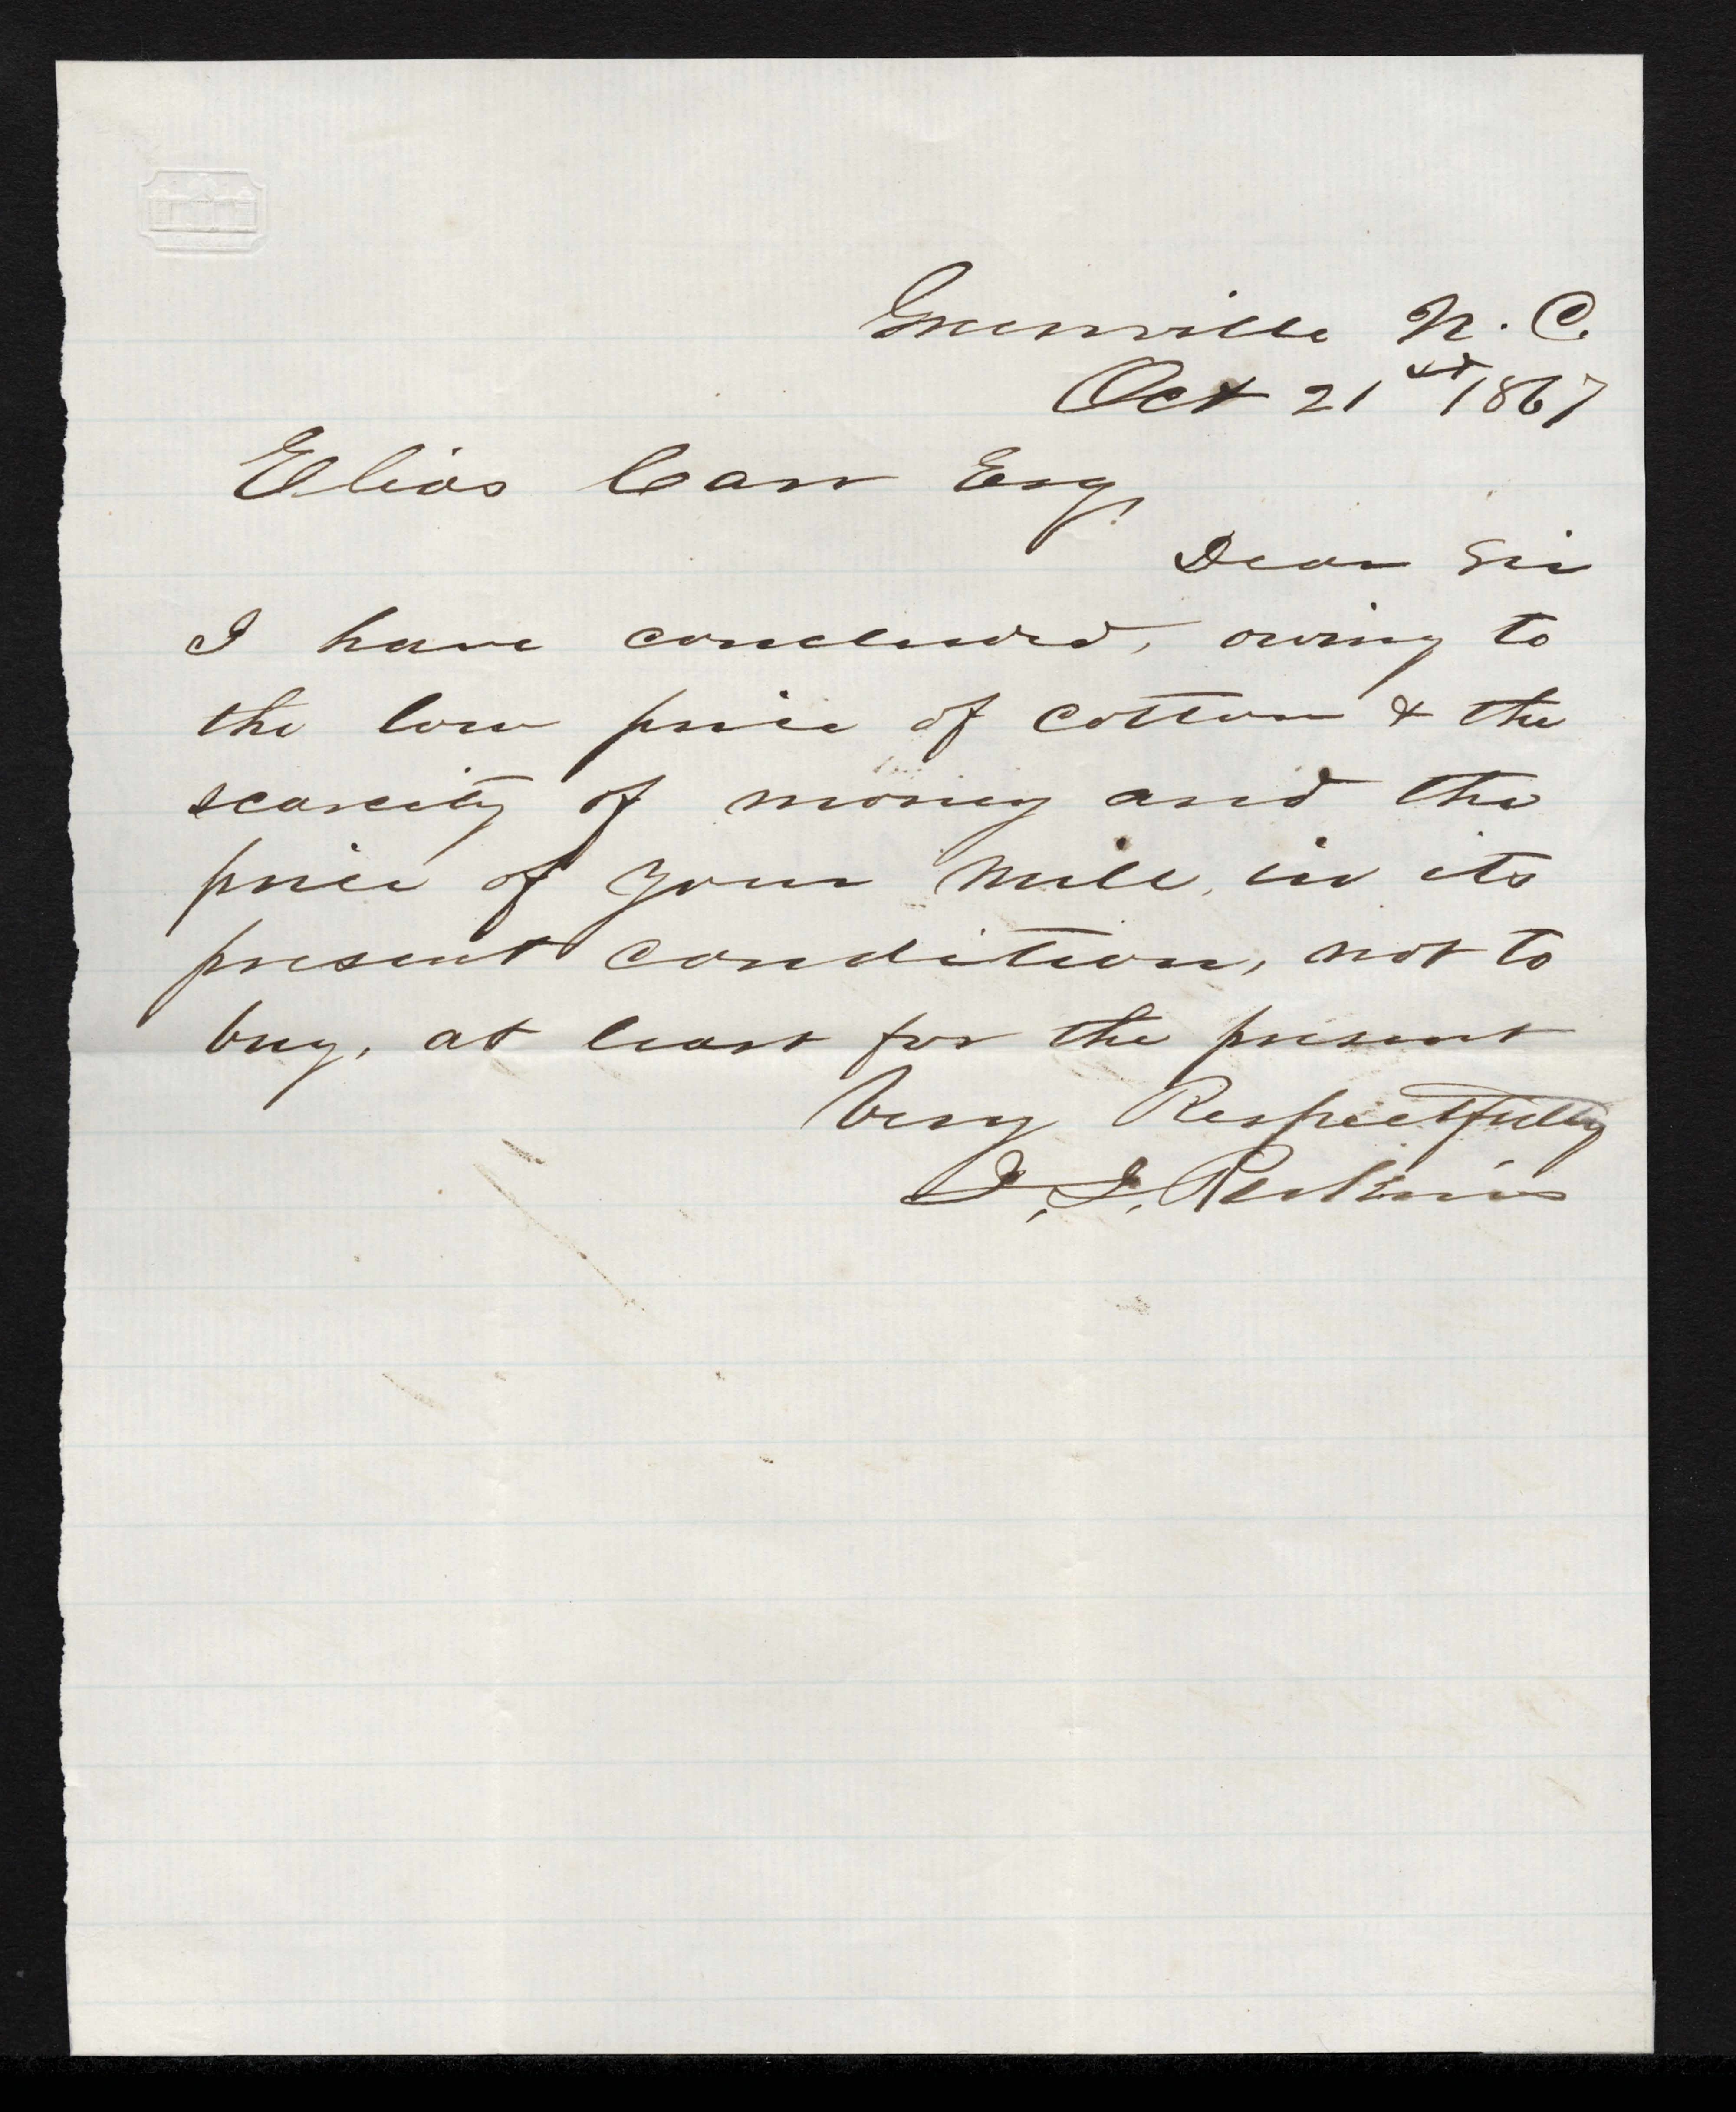 Greenville N. C.
Oct 21st 1867
Elias Carr Esq,
Dear Sir
I have concluded, owing to
the low price of cotton & the
scarcity of money and the
price of your Mill, in its
present condition, not to
buy, at least for the present
Very Respectfully
J. J. Perkins